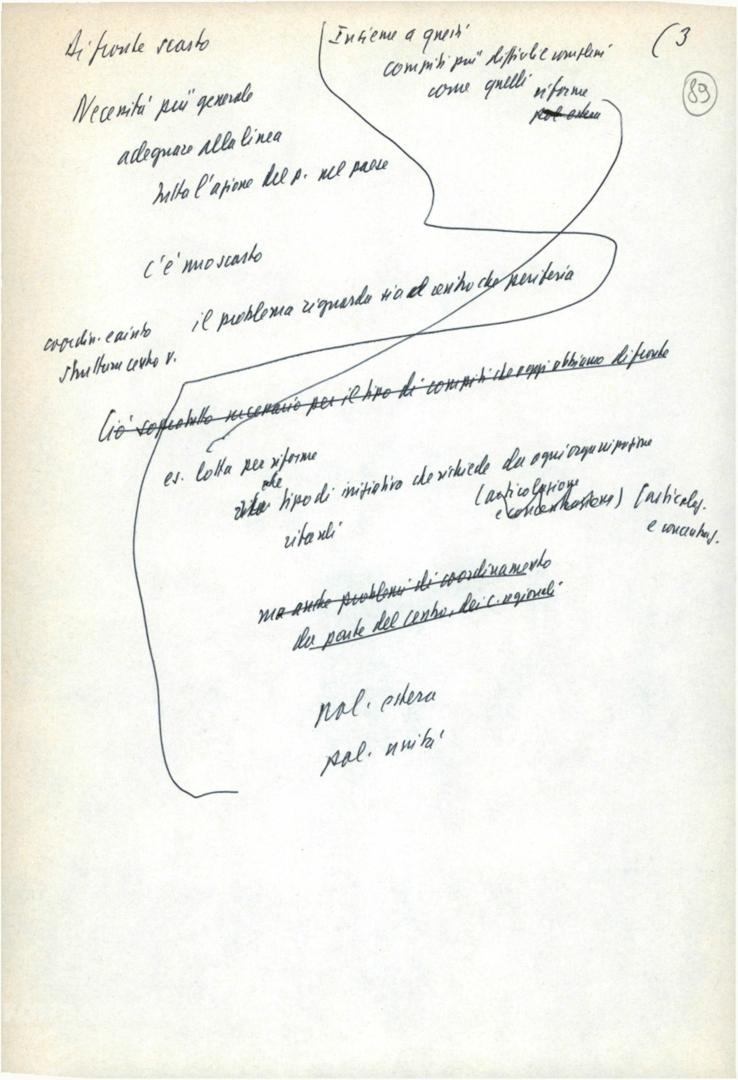 (3
89
Di fronte scarto
Insieme a questi
compiti più difficili e complessi
come quelli riforme
pol. estera
Necessità più generale
adeguare alla linea
tutta l'azione del p. nel paese
C'è uno scarto
il problema riguarda sia al centro che periferia
coordin. e aiuto
strutture centro r.
Ciò soprattutto necessario per il tipo di compiti che oggi abbiamo di fronte
es. lotta per riforme
che
tipo di iniziativa che richiede da ogni organizzazione
(articolazione
e concentrazione) (articolaz.
e concentraz.
ritardi
ma anche problemi di coordinamento
da parte del centro, dei c. regionali
pol. estera
pol. unità